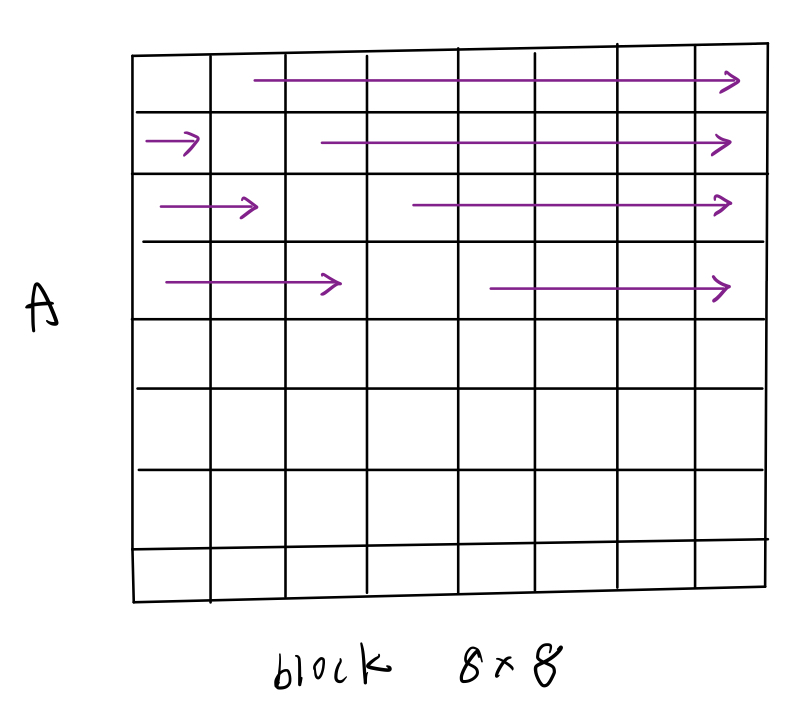 A
block 8×8